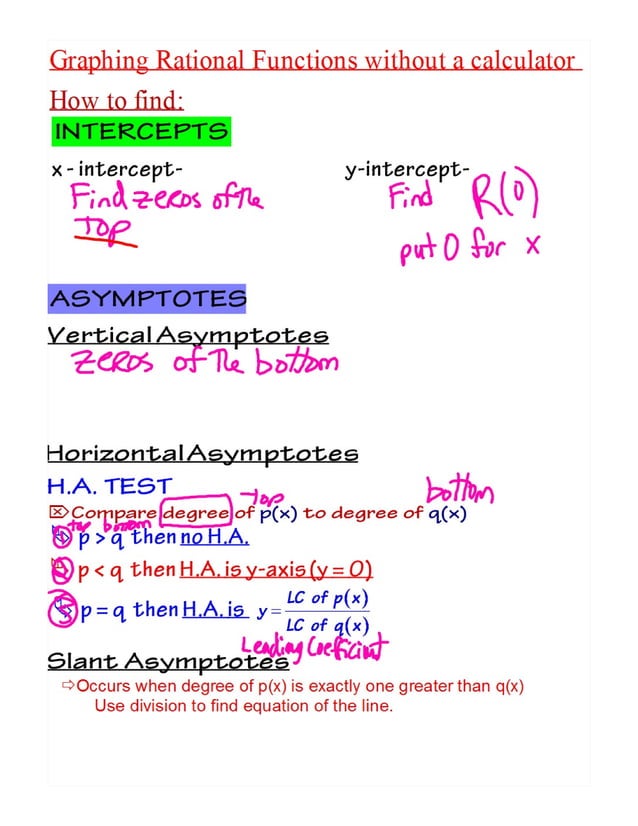 Graphing Rational Functions without a calculator
How to find:
INTERCEPTS
x - intercept-
Find zeros of the
Top
y-intercept-
Find R(0)
put 0 for x
ASYMPTOTES
Vertical Asymptotes
zeros of the bottom
Horizontal Asymptotes
H.A. TEST
Top bottom
Compare degree of p(x) to degree of q(x)
top bottom
① p > q then no H.A.
② p < q then H.A. is y-axis (y = 0)
③ p = q then H.A. is y = LC of p(x) / LC of q(x)
Leading Coefficient
Slant Asymptotes
⇨Occurs when degree of p(x) is exactly one greater than q(x)
Use division to find equation of the line.